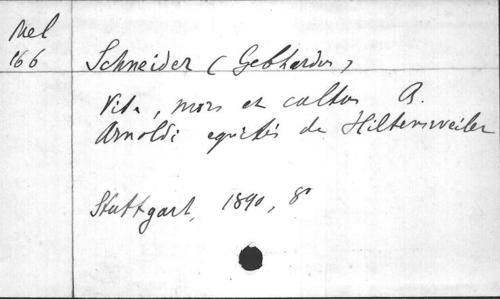 Mel
166
Schneider (Gebhardus)
Vita, mors et cultus A.
Arnoldi equitis de Hiltensweiler
Stuttgart, 1890, 8°